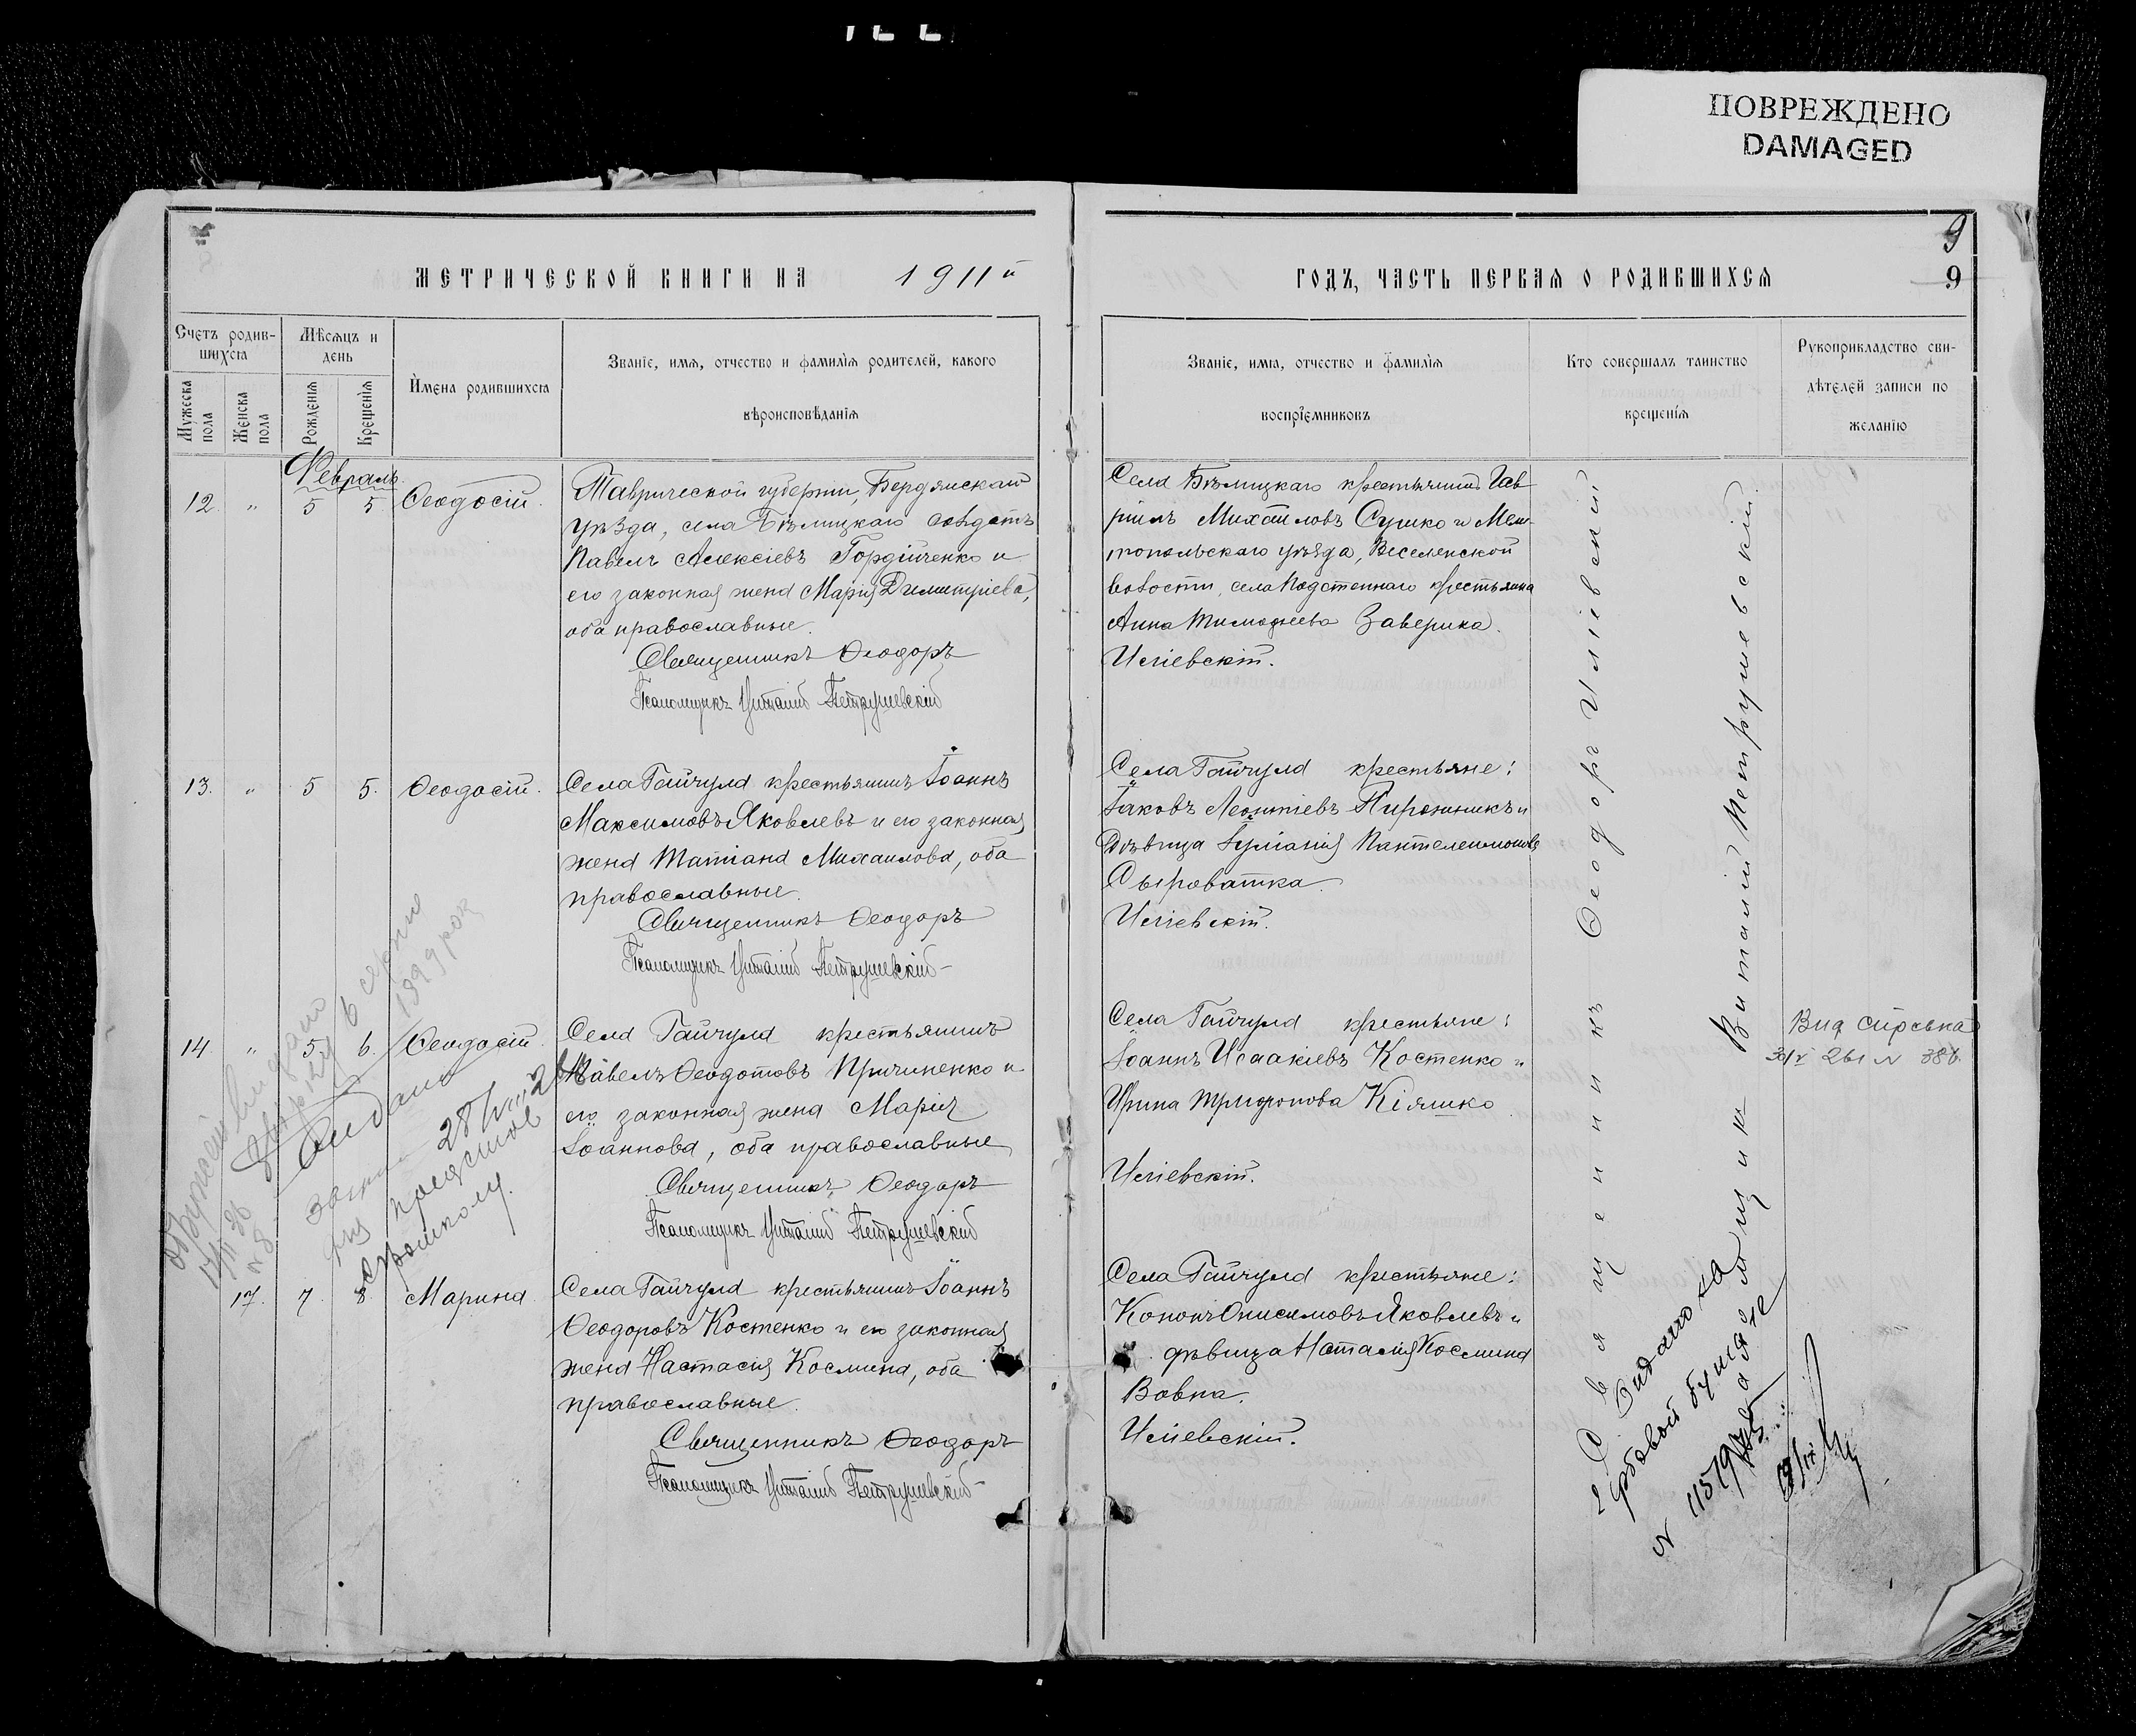 ПОВРЕЖДЕНО
DAMAGED
9
МЕТРИЧЕСКОЙ КНИГИ НА 1911й
ГОДЪ, ЧАСТЬ ПЕРВАЯ О РОДИВШИХСЯ
9
Счетъ родив-
шихся
Мужеска пола
Женска пола
Мѣсяцъ и
день
Рожденія
Крещенія
Имена родившихся
Званіе, имя, отчество и фамилія родителей, какого
вѣроисповѣданія
Званіе, имя, отчество и фамилія
воспріемниковъ
Кто совершалъ таинство
крещенія
Рукоприкладство сви-
дѣтелей записи по
желанію
Февраль.
12. " 5 5 Ѳеодосій.
Таврической губерніи, Бердянскаго
уѣзда, села Бѣлицкаго солдатъ
Павелъ Алексіевъ Гордійченко и
его законная жена Марія Димитріева,
оба православные.
Священникъ Ѳеодоръ
Псаломщикъ Виталій Петрушевскій
Села Бѣлицкаго крестьянинъ Гав-
ріилъ Михаиловъ Сушко и Мели-
топольскаго уѣзда, Веселенской
волости, села крестьянка
Анна Тимоѳеева Заверика.
Иліевскій.
13. " 5 5. Ѳеодосій.
Села Гайчула крестьянинъ Іоаннъ
Максимовъ Яковлевъ и его законная
жена Татіана Михаилова, оба
православные.
Священникъ Ѳеодоръ
Псаломщикъ Виталій Петрушевскій
Села Гайчула крестьяне:
Іаковъ Леонтіевъ Пироженикъ и
дѣвица Іуліанія Пантелеимонова
Сыроватка.
Иліевскій.
14. " 5 6. Ѳеодосій.
Села Гайчула крестьянинъ
Павелъ Ѳеодотовъ Причиненко и
его законная жена Марія
Іоаннова, оба православные
Священникъ Ѳеодоръ
Псаломщикъ Виталій Петрушевскій
Села Гайчула крестьяне:
Іоаннъ Исаакіевъ Костенко и
Ирина Трифонова Кіяшко
Иліевскій.
17. 7. 8. Марина.
Села Гайчула крестьянинъ Іоаннъ
Ѳеодоровъ Костенко и его законная
жена Настасія Космина, оба
православные.
Священникъ Ѳеодоръ
Псаломщикъ Виталій Петрушевскій
Села Гайчула крестьяне:
Кононъ Онисимовъ Яковлевъ и
дѣвица Наталія Космина
Вовна.
Иліевскій.
Священникъ Ѳеодоръ Иліевскій
Псаломщикъ Виталій Петрушевскій
6 серпня
Видано
Видано на
№ 11519